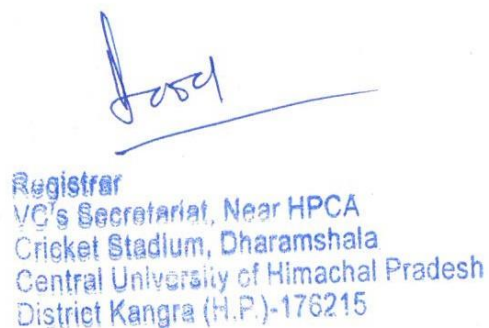 Registrar
VC's Secretariat, Near HPCA
Cricket Stadium, Dharamshala
Central University of Himachal Pradesh
District Kangra (H.P.)-176215